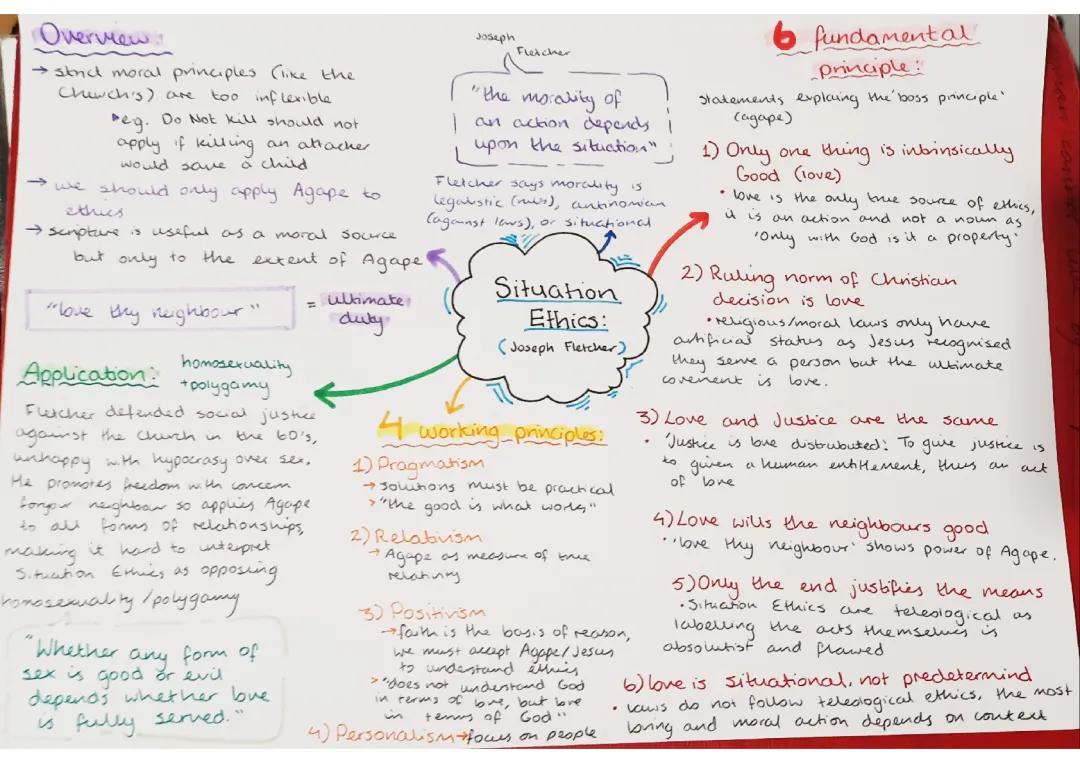 Overview:
→ strict moral principles (like the
Church's) are too inflexible
▸eg. Do Not kill should not
apply if killing an attacker
would save a child
→ we should only apply Agape to
ethics
→ scripture is useful as a moral source
but only to the extent of Agape
"love thy neighbour"
= ultimate
duty
Joseph
Fletcher
"the morality of
an action depends
upon the situation"
Fletcher says morality is
legalistic (rules), antinomian
(against laws), or situational
Situation
Ethics:
(Joseph Fletcher)
Application: homosexuality
+polygamy
Fletcher defended social justice
against the Church in the 60's,
unhappy with hypocrasy over sex.
He promotes freedom with concern
for your neighbour so applies Agape
to all forms of relationships,
making it hard to interpret
Situation Ethics as opposing
homosexuality/polygamy
"Whether any form of
sex is good or evil
depends whether love
is fully served."
4 working principles:
1) Pragmatism
→ solutions must be practical
> "the good is what works"
2) Relativism
→ Agape as measure of true
relativity
3) Positivism
→ faith is the basis of reason,
we must accept Agape/Jesus
to understand ethics
> "does not understand God
in terms of love, but love
in terms of God"
4) Personalism→focus on people
6 fundamental
principle:
statements explaing the 'boss principle'
(agape)
1) Only one thing is intrinsically
Good (love)
• love is the only true source of ethics,
it is an action and not a noun as
'Only with God is it a property'
2) Ruling norm of Christian
decision is love
• religious/moral laws only have
artificial status as Jesus recognised
they serve a person but the ultimate
covenent is love.
3) Love and Justice are the same
• 'Justice is love distributed': To give justice is
to given a human entitlement, thus an act
of love
4) Love wills the neighbours good
• 'love thy neighbour' shows power of Agape.
5) Only the end justifies the means
• Situation Ethics are teleological as
labelling the acts themselves is
absolutist and flawed
6) love is situational, not predetermind
• laws do not follow teleological ethics, the most
loving and moral action depends on context